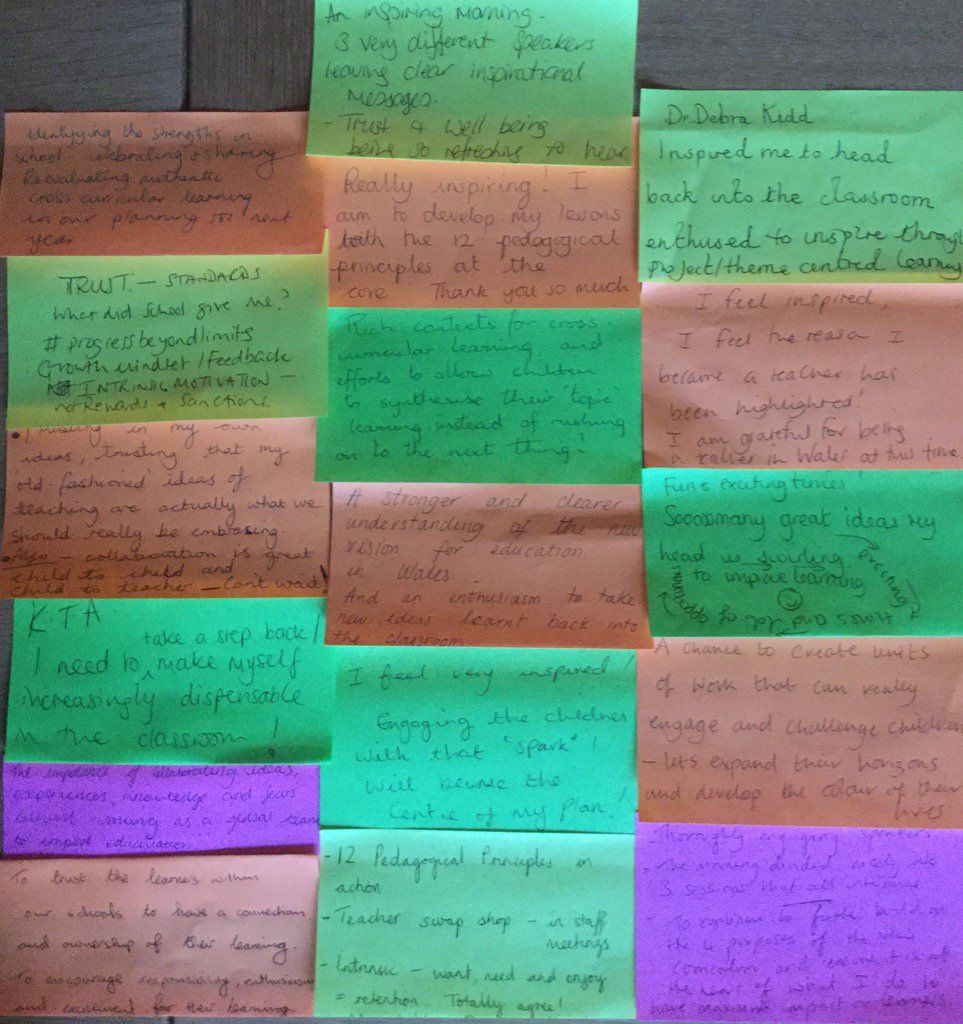 An inspiring Morning.
3 very different speakers
leaving clear inspirational
Messages.
- Trust & Well being
being so refreshing to hear
Identifying the strengths in
school - celebrating & sharing
Re evaluating authentic
cross curricular learning
in our planning for next
year
TRUST. — STANDARDS
What did school give me?
# progressbeyondlimits
Growth mindset / Feedback
INTRINSIC MOTIVATION —
no Rewards & Sanctions.
• Trusting in my own
ideas, trusting that my
'old-fashioned' ideas of
teaching are actually what we
should really be embracing
• Also - collaboration is great
child to child and
child to teacher — Can't wait!
KTA
take a step back!
I need to make myself
increasingly dispensable
in the classroom!
The importance of collaborating ideas,
experiences, knowledge and
working as a global team
to improve education
To trust the learners within
our schools to have a connection
and ownership of their learning.
To encourage responsibility, enthusiasm
and excitement for their learning
Really inspiring! I
aim to develop my lessons
with the 12 pedagogical
principles at the
core Thank you so much
Rich contexts for cross
curricular learning and
efforts to allow children
to synthesise their topic
learning instead of rushing
on to the next thing!
A stronger and clearer
understanding of the new
vision for education
in Wales
And an enthusiasm to take
new ideas learnt back into
the classroom
I feel very inspired!
Engaging the children
with that "spark"!
Will become the
Centre of my Plan!
- 12 Pedagogical Principles in
action
- Teacher swap shop - in staff
meetings
- Intrinsic - want, need and enjoy
= retention Totally agree!
Dr. Debra Kidd
Inspired me to head
back into the classroom
enthused to inspire through
project/theme centred learning
I feel inspired,
I feel the reason I
became a teacher has
been highlighted!
I am grateful for being
a teacher in Wales at this time
Fun & exciting times!
Sooooomany great ideas my
head is swirling
to improve learning
exciting
times and lot of
A chance to create units
of work that can really
engage and challenge children
- lets expand their horizons
and develop the colour of their
lives
Thoroughly engaging speakers
- The morning divided nicely into
3 sessions that all intertwine
- To continue to further build on
the 4 purposes of the new
curriculum and ensure it is at
the heart of what I do to
have maximum impact on learners